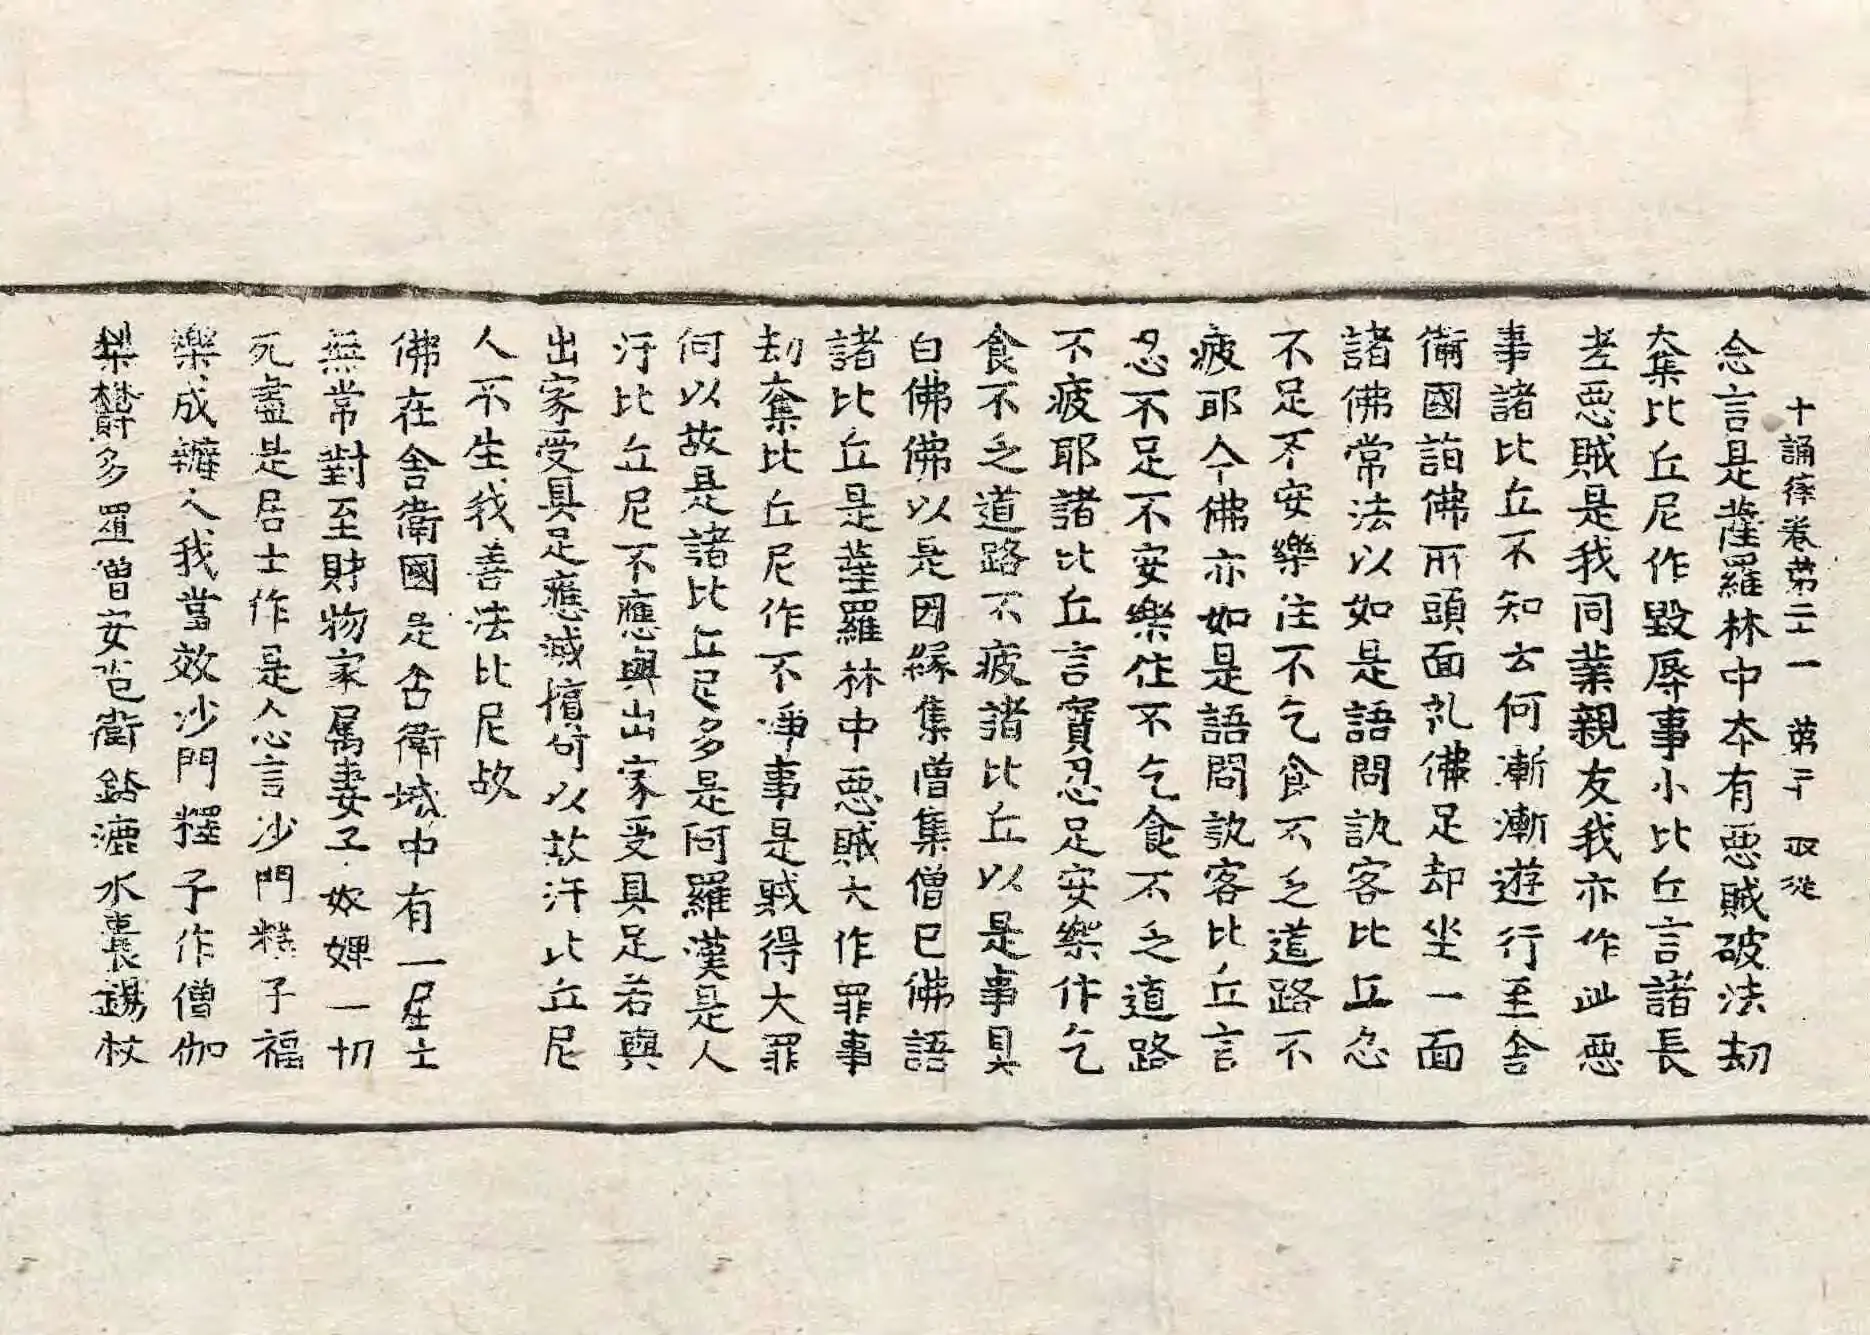 十誦律卷第二十一　第二十　取從
念言是薩羅林中本有惡賊破法劫
奪比丘尼作毀辱事小比丘言諸長
老惡賊是我同業親友我亦作此惡
事諸比丘不知云何漸漸遊行至舍
衛國詣佛所頭面礼佛足却坐一面
諸佛常法以如是語問訊客比丘忍
不足不安樂住不乞食不乏道路不
疲耶今佛亦如是語問訊客比丘言
忍不足不安樂住不乞食不乏道路
不疲耶諸比丘言實忍足安樂住乞
食不乏道路不疲諸比丘以是事具
白佛佛以是因緣集僧集僧已佛語
諸比丘是薩羅林中惡賊大作罪事
劫奪比丘尼作不淨事是賊得大罪
何以故是諸比丘尼多是阿羅漢是人
汙比丘尼不應與出家受具足若與
出家受具足應滅擯何以故汙比丘尼
人不生我善法比尼故
佛在舍衛國是舍衛城中有一居士
無常對至財物家属妻子奴婢一切
死盡是居士作是念言沙門釋子福
樂成辦人我當效沙門釋子作僧伽
梨欝多羅僧安陀衛鉢漉水囊錫杖